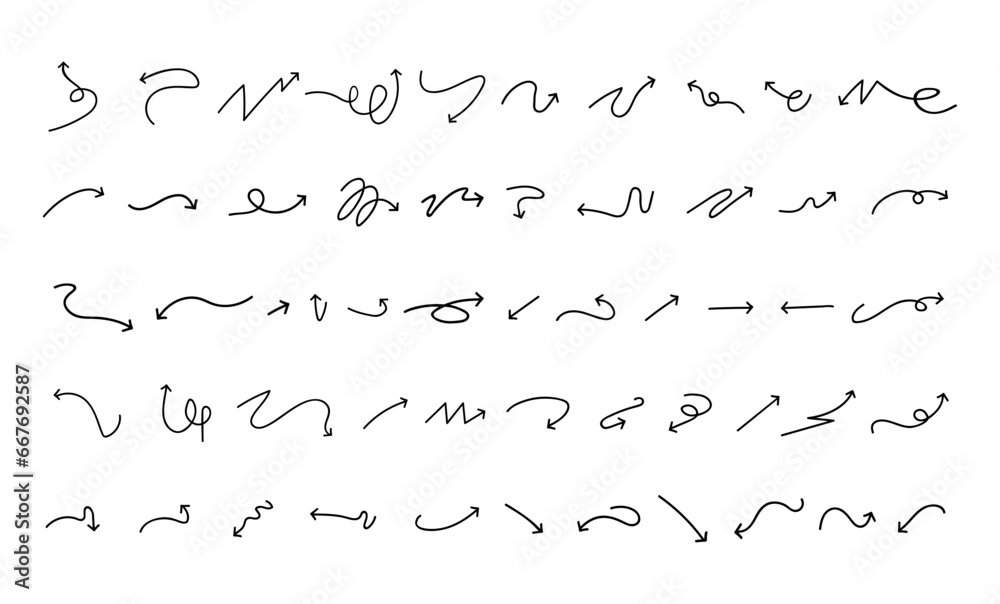 Adobe Stock | #667692587